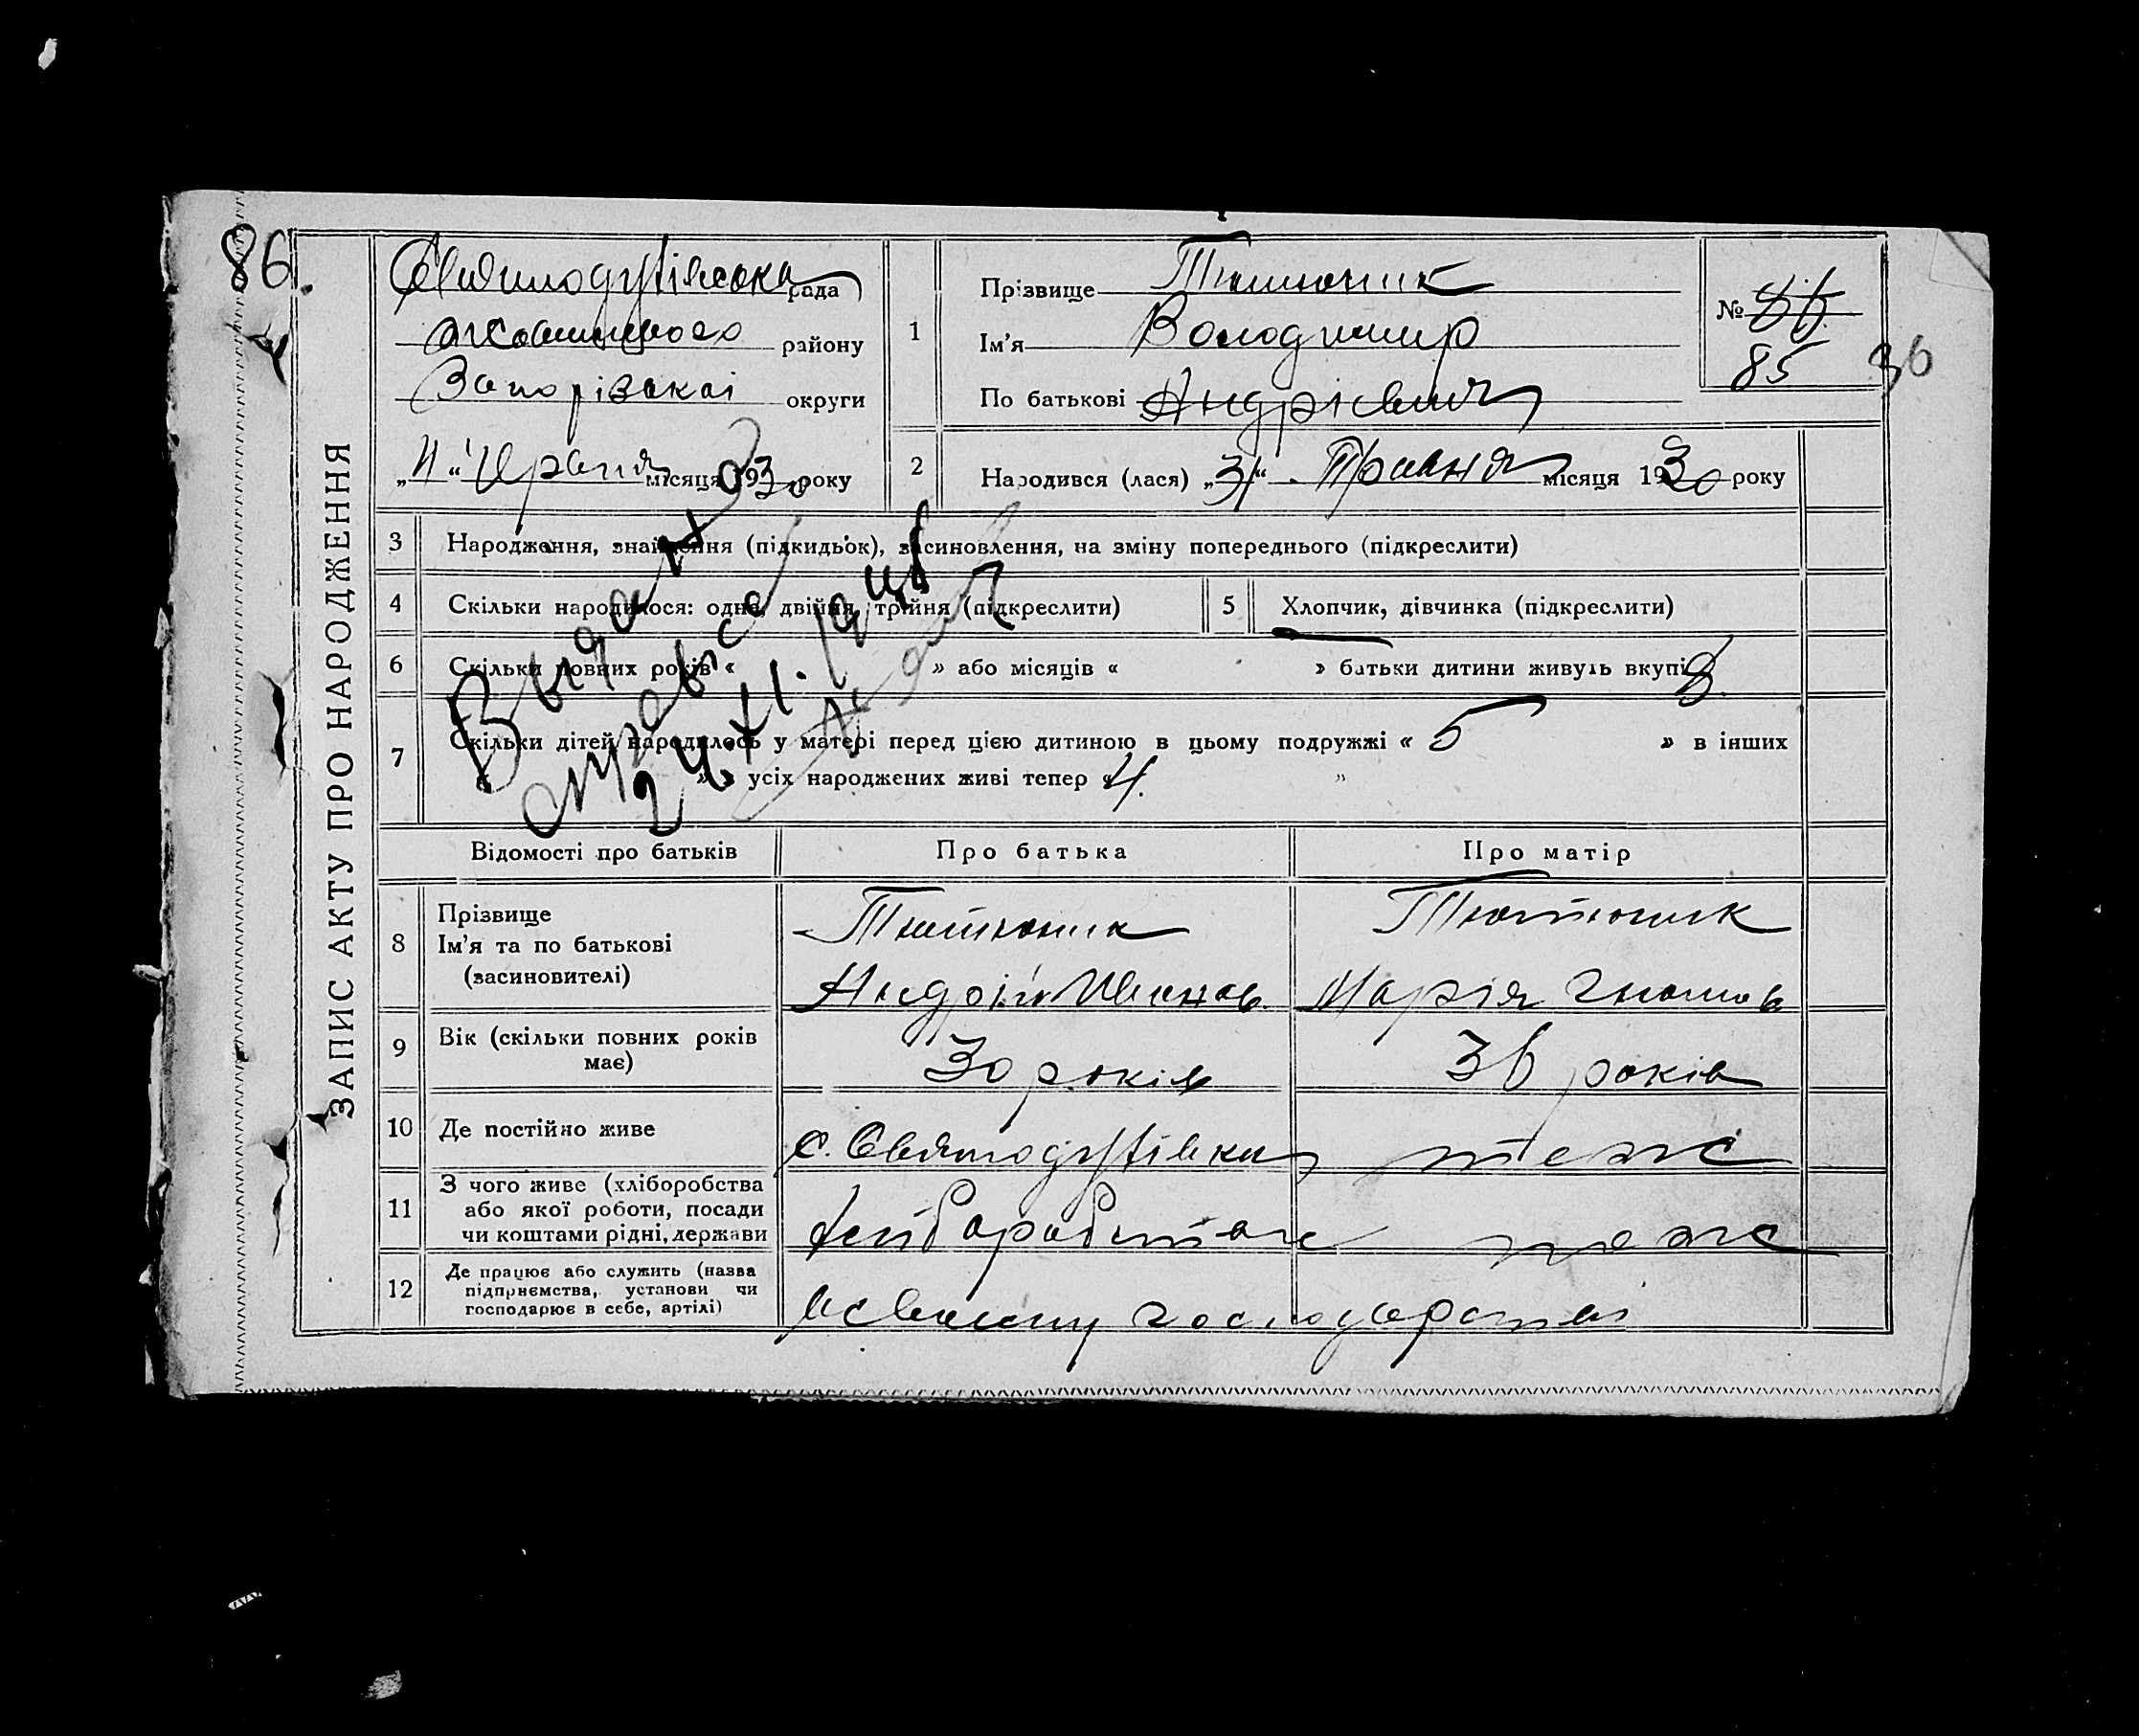 86.
ЗАПИС АКТУ ПРО НАРОДЖЕННЯ
Святодухівська рада
району
Запорізької округи
місяця 1930 року
1
Прізвище Тютюник
Ім'я Володимир
По батькові Андрієвич
№ 86
85
36
2
Народився (лася) „31“ Травня місяця 1930 року
3 Народження, знайдення (підкидьок), засиновлення, на зміну попереднього (підкреслити)
4 Скільки народилося: одне, двійня, трійня (підкреслити)
5 Хлопчик, дівчинка (підкреслити)
6 Скільки повних років « » або місяців « » батьки дитини живуть вкупі 8.
7 Скільки дітей народилось у матері перед цією дитиною в цьому подружжі « 5 » в інших
« » усіх народжених живі тепер « 4. »
Відомості про батьків Про батька Про матір
8
Прізвище
Ім'я та по батькові
(засиновителі)
Тютюник
Андрій Иванов.
Тютюник
Марія
9
Вік (скільки повних років
має)
30 років
36 років
10 Де постійно живе
с. Святодухівка теж
11
З чого живе (хліборобства
або якої роботи, посади
чи коштами рідні, держави
теж
12
Де працює або служить (назва
підприємства, установи чи
господарює в себе, артілі)
в свому господарстві